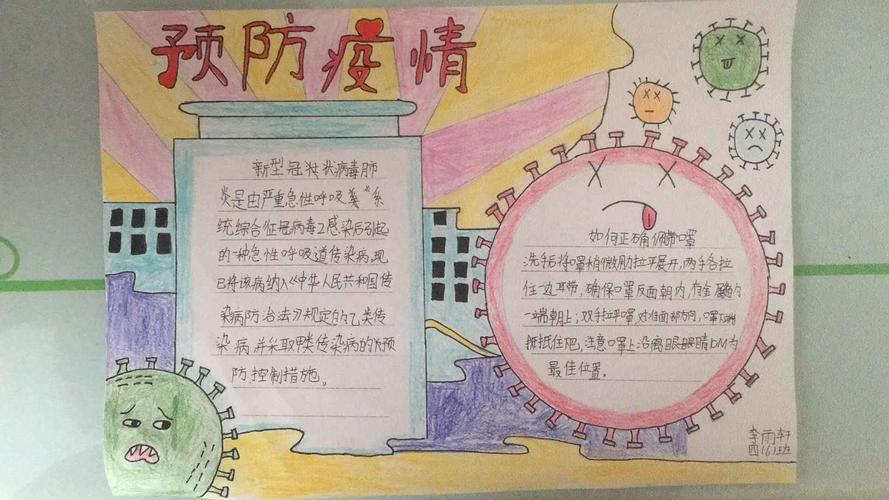 预防疫情
新型冠状病毒肺
炎是由严重急性呼吸系
统综合征冠病毒2感染后引起
的一种急性呼吸道传染病,现
已将该病纳入《中华人民共和国传
染病防治法》规定的乙类传
染病,并采取甲类传染病的预
防,控制措施。
如何正确佩带口罩
洗手后将口罩稍微拉平展开,两手各拉
住一边耳带,确保口罩反面朝内,有金属的
一端朝上;双手拉平口罩对准面部方向,口罩下端
抵住下巴,注意口罩上沿离眼睛DM为
最佳位置。
李雨轩
四(6)班